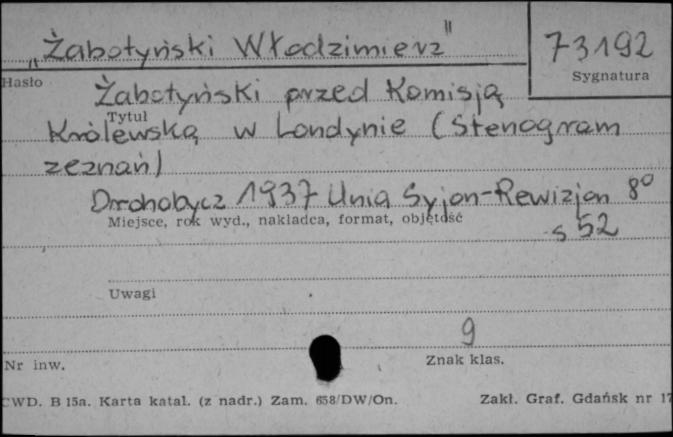 „Żabotyński Włodzimierz"
73192
Hasło
Sygnatura
Żabotyński przed Komisją
Tytuł
Królewską w Londynie (Stenogram
zeznań)
Drohobycz 1937 Unia Syjon-Rewizjon 8°
Miejsce, rok wyd., nakładca, format, objętość
s 52
Uwagi
9
Nr inw.
Znak klas.
CWD. B 15a. Karta katal. (z nadr.) Zam. 658/DW/On.
Zakł. Graf. Gdańsk nr 17